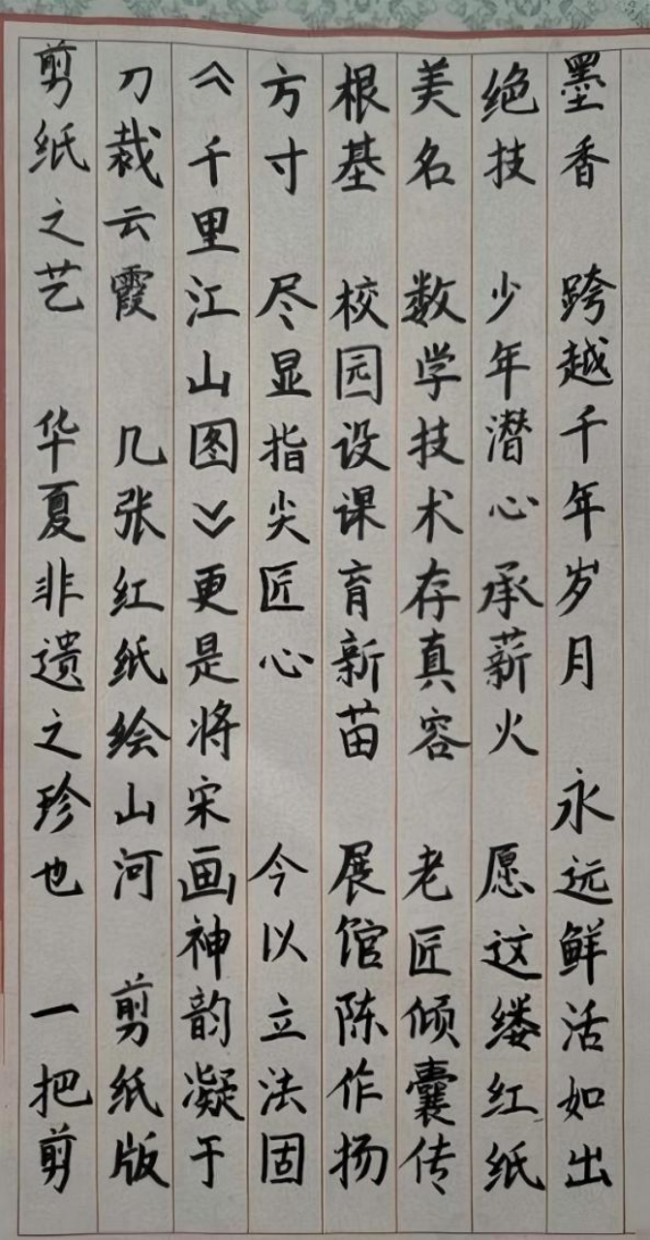 剪纸之艺 华夏非遗之珍也 一把剪
刀裁云霞 几张红纸绘山河 剪纸版
《千里江山图》更是将宋画神韵凝于
方寸 尽显指尖匠心 今以立法固
根基 校园设课育新苗 展馆陈作扬
美名 数学技术存真容 老匠倾囊传
绝技 少年潜心承薪火 愿这缕红纸
墨香 跨越千年岁月 永远鲜活如出